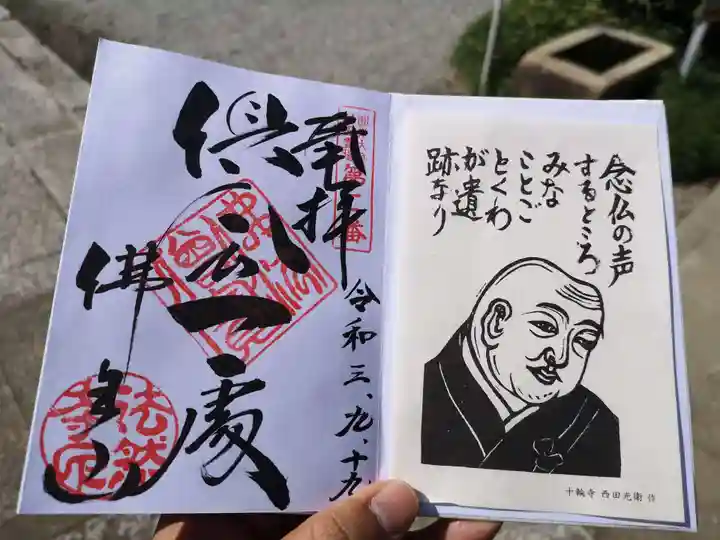 奉拝
倶会一處
令和三、九、十九
佛
法然
寺
念仏の声
するところ
みな
ことごとくわ
が遺
跡なり
十輪寺 西田光衛 作